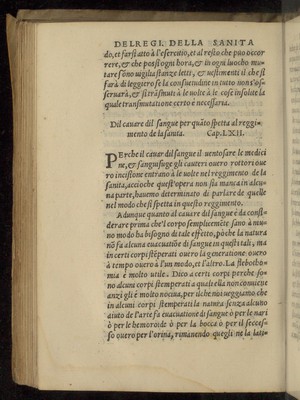 DEL REGI. DELLA SANITA
do, et farsi atto à l'esercitio, et al resto che puo occor
rere, & che possi ogni hora, & in ogni luocho mu
tare sono uigilia stanze letti, & uestimenti il che si
farà di leggiero se la consuetudine in tutto non s'os-
seruarà, & si trāsmuti à le uolte à le cose insolite la
quale transmutatione certo è necessaria.
Dil cauare dil sangue per quāto spetta al reggi-
mento de la sanita. Cap. LXII.
PErche il cauar dil sangue il uentosare le medici
ne, & sangusughe gli cauteri ouero rottori oue
ro incisione entrano à le uolte nel reggimento de la
sanita, accioche quest'opera non sia manca in alcu-
na parte, hauemo determinato di parlare de quelle
nel modo che si spetta in questo reggimento.
Adunque quanto al cauare dil sangue è da consi-
derare prima che'l corpo sempliciemēte sano à neu-
no modo ha bisogno di tale effetto, poche la natura
nō fa alcuna euacuatiōe di sangue in questi tali, ma
in certi corpi stēperati ouero la generatione ouero
à tempo ouero à l'un modo, et l'altro. La flebotho-
mia è molto utile. Dico a certi corpi perche so-
no alcuni corpi stemperati a quali ella non conuiene
anzi gli è molto nociua, per ilche noi ueggiamo che
in alcuni corpi stemperati la natura senza alcuno
aiuto de l'arte fa euacuatione di sangue ò per le nari
ò per le hemoroide ò per la bocca ò per il secces-
so ouero per l'orina, rimanendo quegli ne la lati-